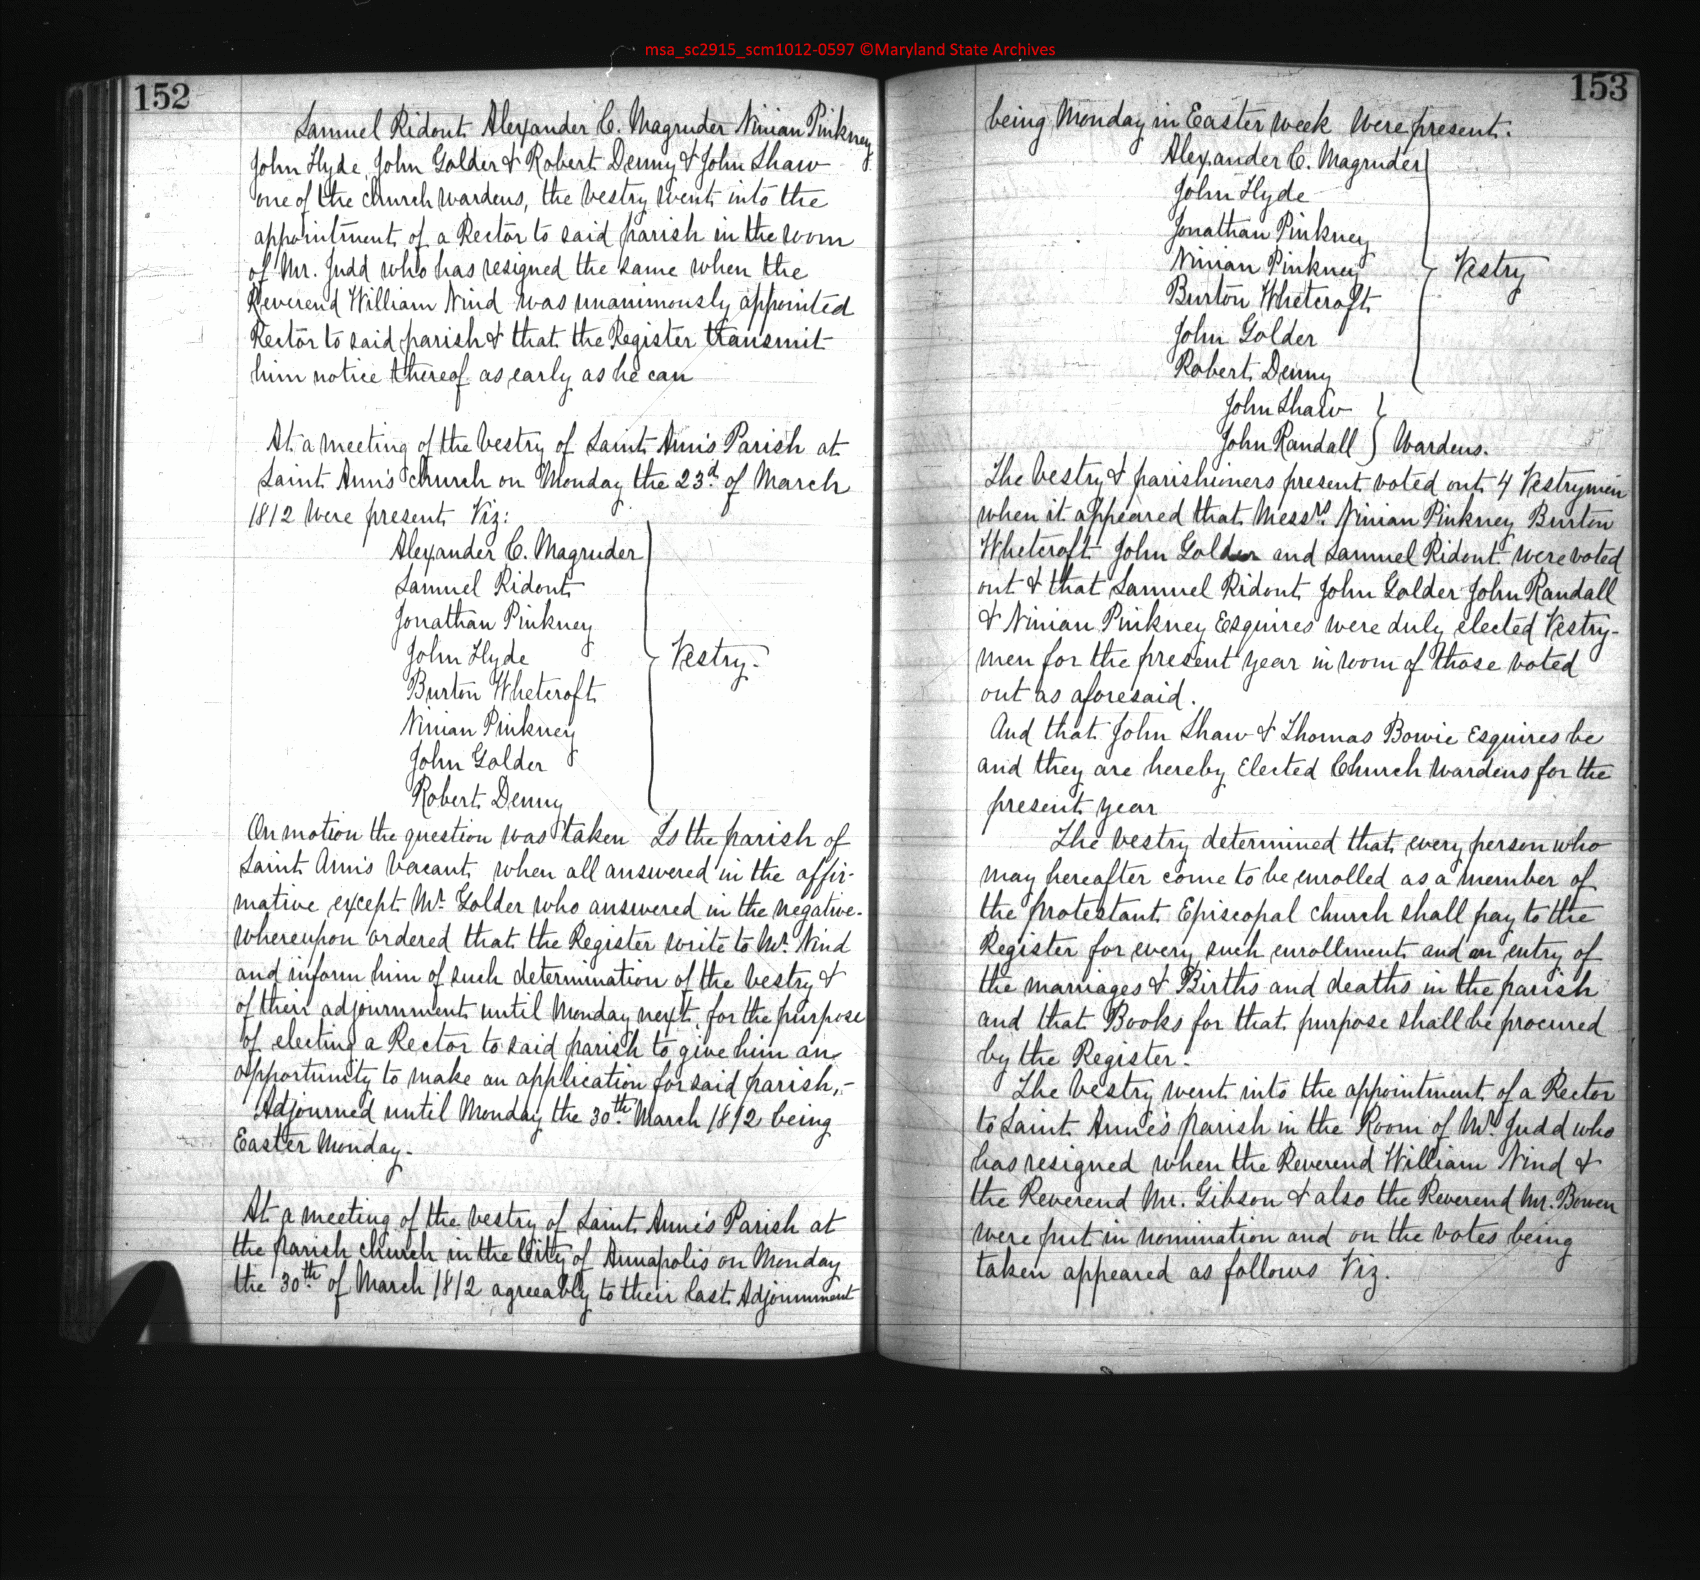 msa_sc2915_scm1012-0597 ©Maryland State Archives
152
Samuel Ridout Alexander C. Magruder Ninian Pinkney
John Hyde, John Golder & Robert Denny & John Shaw
one of the church wardens, the vestry went into the
appointment of a Rector to said parish in the room
of Mr. Judd who has resigned the same when the
Reverend William Nind was unanimously appointed
Rector to said parish & that the Register transmit
him notice thereof as early as he can
At a meeting of the Vestry of Saint Ann's Parish at
Saint Ann's church on Monday the 23d of March
1812 Were present Viz:
Alexander C. Magruder
Samuel Ridout
Jonathan Pinkney
John Hyde
Vestry.
Burton Whetcroft
Ninian Pinkney
John Golder
Robert Denny
On motion the question was taken Is the parish of
Saint Ann's vacant when all answered in the affir-
mative except Mr. Golder who answered in the negative.
whereupon ordered that the Register write to Mr. Nind
and inform him of such determination of the vestry &
of their adjournment until Monday next, for the purpose
of electing a Rector to said parish to give him an
opportunity to make an application for said parish,-
Adjourned until Monday the 30th March 1812 being
Easter Monday.
At a meeting of the vestry of Saint Anne's Parish at
the parish church in the City of Annapolis on Monday
the 30th of March 1812 agreeably to their last Adjournment
153
being Monday in Easter week Were present.
Alexander C. Magruder
John Hyde
Jonathan Pinkney
Ninian Pinkney
Vestry
Burton Whetcroft
John Golder
Robert Denny
John Shaw
John Randall } Wardens.
The Vestry & parishioners present voted out 4 Vestrymen
when it appeared that Messrs. Ninian Pinkney Burton
Whetcroft John Golder and Samuel Ridout were voted
out & that Samuel Ridout John Golder John Randall
& Ninian Pinkney Esquires were duly elected Vestry-
men for the present year in room of those voted
out as aforesaid.
And that John Shaw & Thomas Bowie Esquires be
and they are hereby Elected Church Wardens for the
present year
The vestry determined that every person who
may hereafter come to be enrolled as a member of
the Protestant Episcopal church shall pay to the
Register for every such enrollment and an entry of
the marriages & Births and deaths in the parish
and that Books for that purpose shall be procured
by the Register.
The Vestry went into the appointment of a Rector
to Saint Anne's Parish in the Room of Mr. Judd who
has resigned when the Reverend William Nind &
the Reverend Mr. Gibson & also the Reverend Mr. Bowen
were put in nomination and on the votes being
taken appeared as follows Viz.